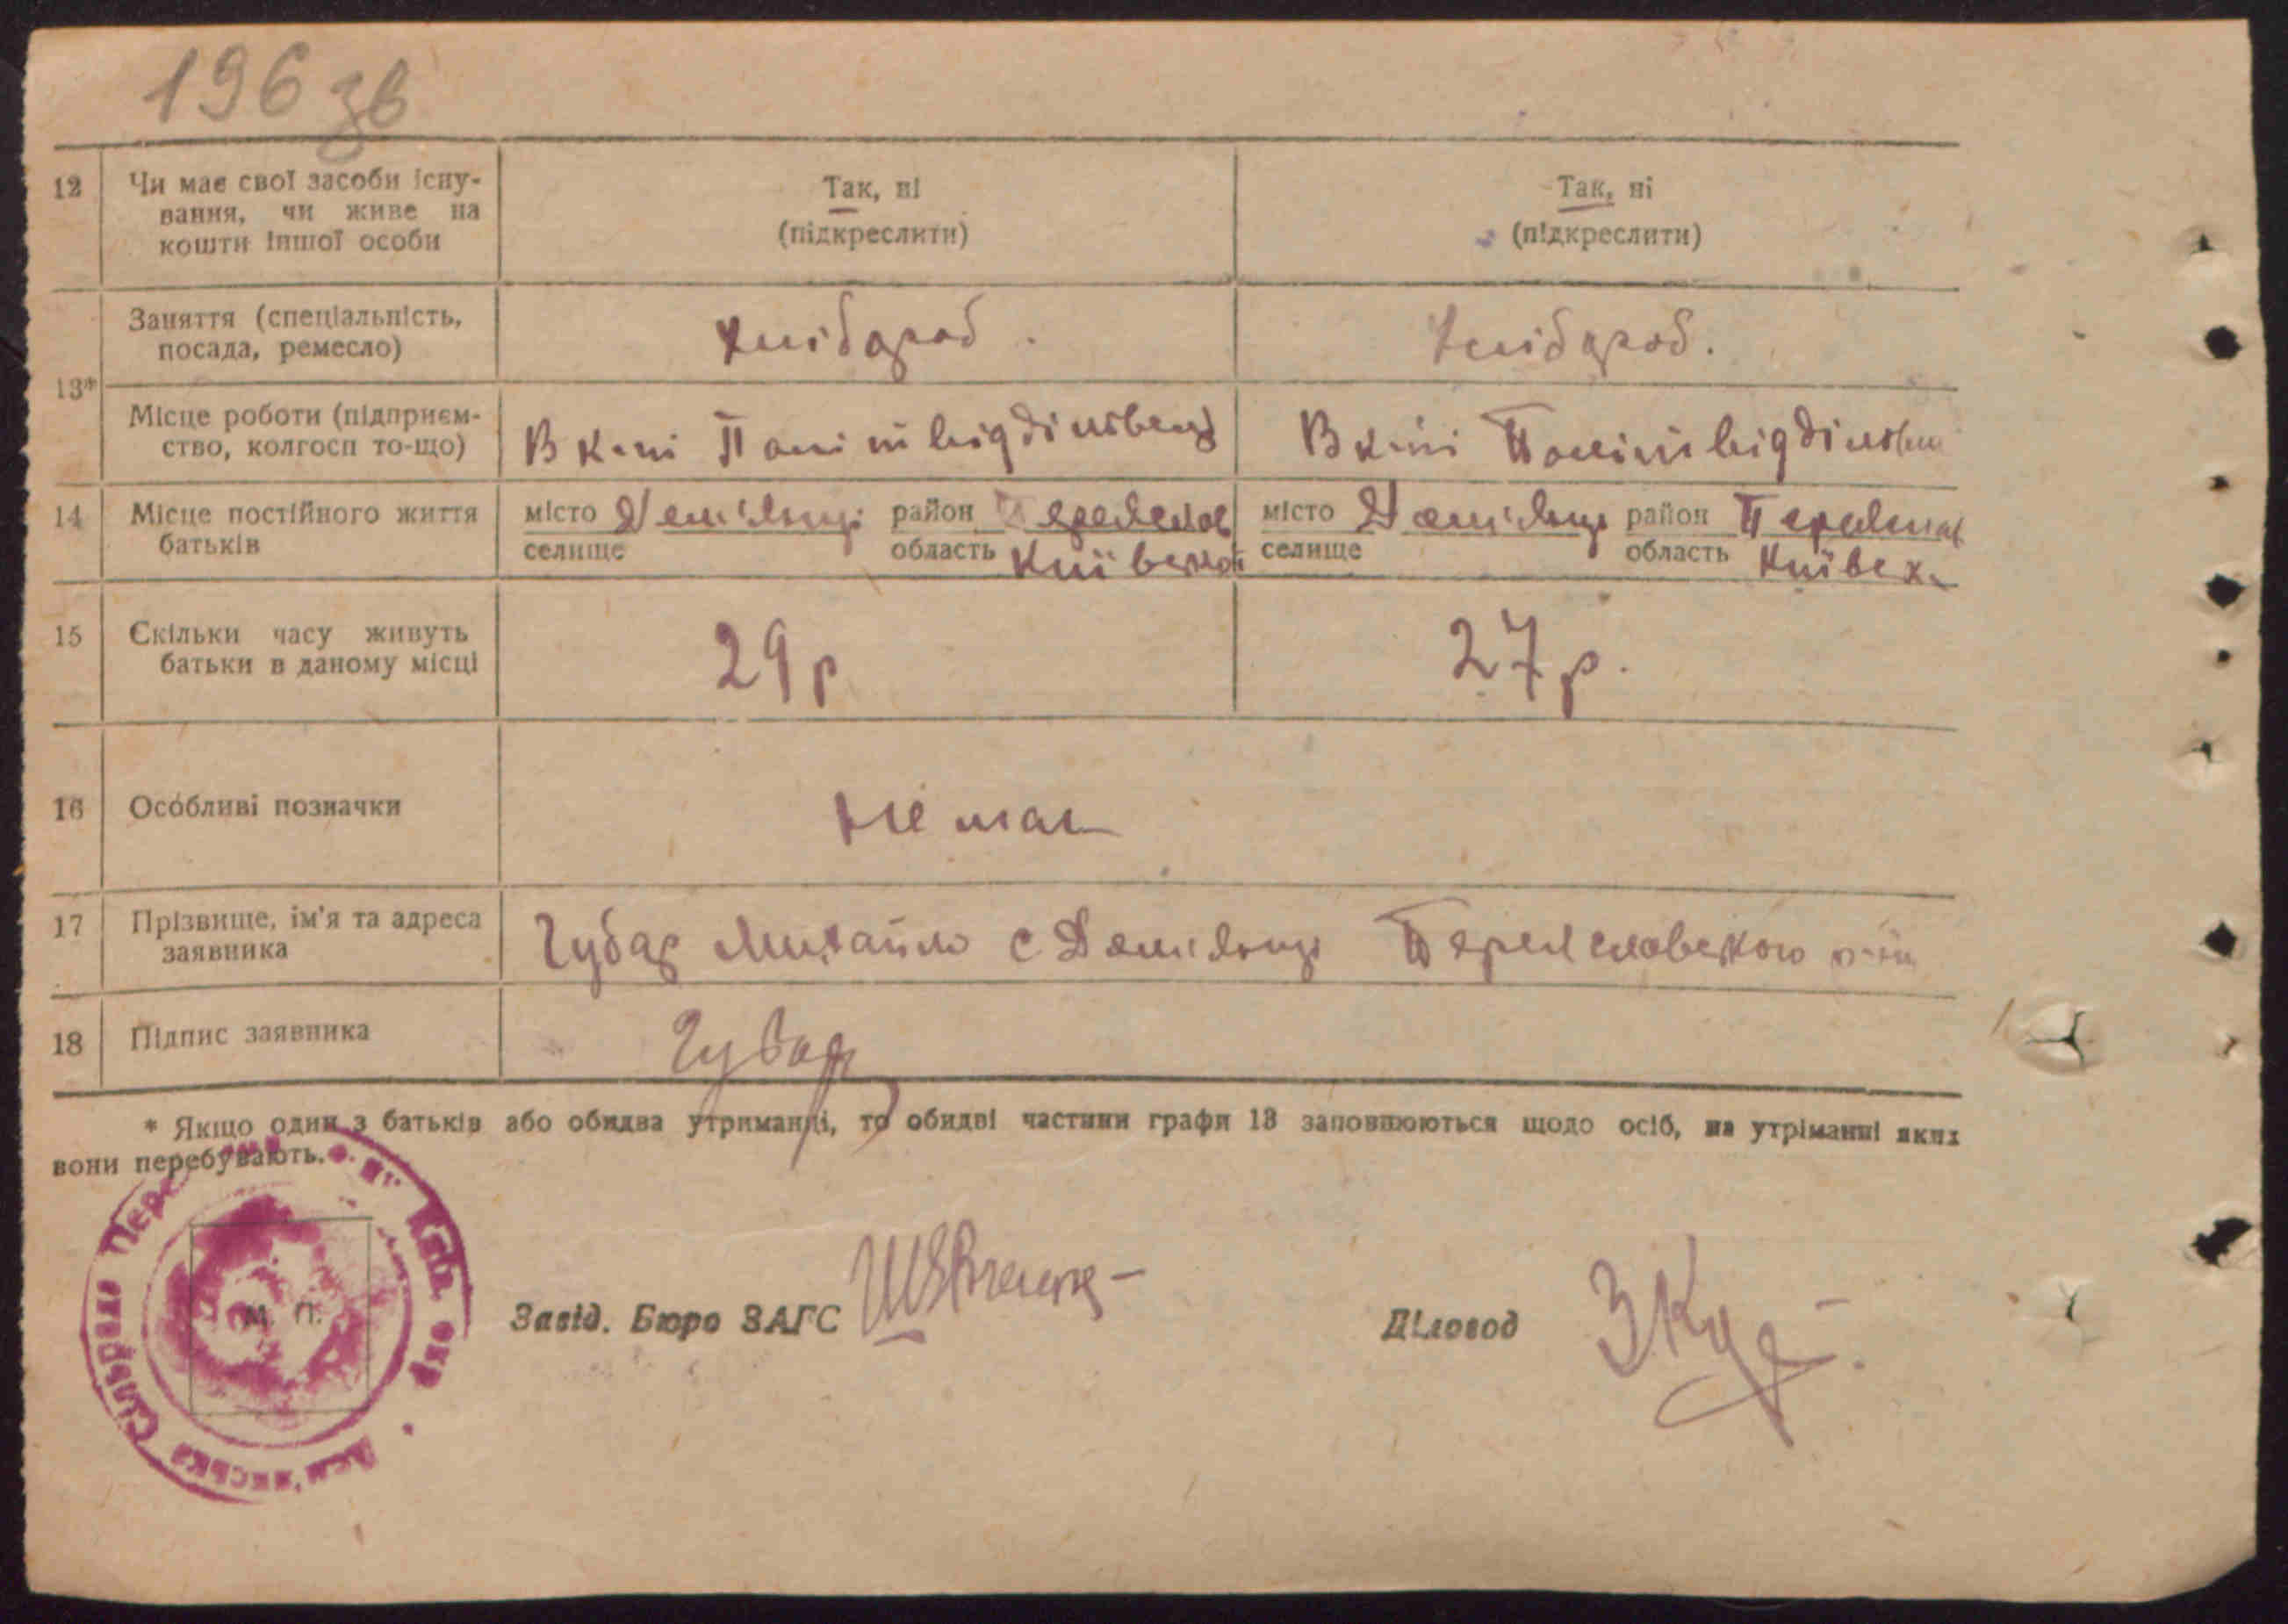 196 зв
12 Чи має свої засоби існу-
вання, чи живе на
кошти іншої особи
Так, ні
(підкреслити)
Так, ні
(підкреслити)
13*
Заняття (спеціальність,
посада, ремесло)
Хлібороб.
Хлібороб.
Місце роботи (підприєм-
ство, колгосп то-що)
В к-пі Політвідділівець
В к-пі Політвідділівец
14 Місце постійного життя
батьків
місто Демянці район Переяслав
селище область Київської
місто Демянці район Переяслав
селище область Київск
15 Скільки часу живуть
батьки в даному місці
29 р
27 р.
16 Особливі позначки
Немає
17 Прізвище, ім'я та адреса
заявника
Чубар Михайло с Демянці Переяславского р-ну
18 Підпис заявника
Чубар
* Якщо один з батьків або обидва утриманці, то обидві частини графи 13 заповнюються щодо осіб, на утріманні яких
вони перебувають.
М. П.
Завід. Бюро ЗАГС
Діловод